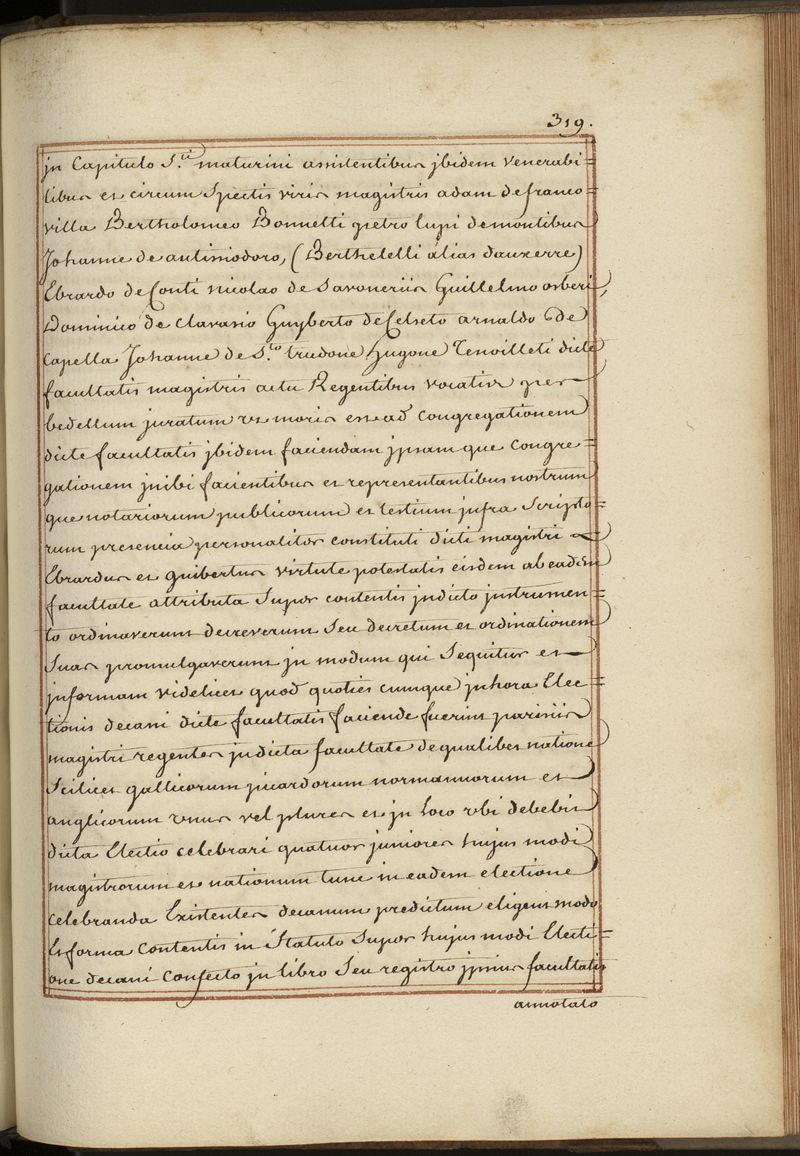 319.
jn Capitulo S.ti maturini assistentibus jbidem venerabi=
libus et circum Spectis viris magistris adam de franco=
villa Bertholomeo Bonnetti petro lupi demontibus
Johanne de antissiodoro, (Berthelelli alias dauxerre)
Ebrardo de Conti nicolao de Savoneriis Guillelmo osberi,
Dominico de clavasio Guyberto de Celseto arnaldo de
Capella Johanne de S.to trudone hugone Tenoilleti dicte
facultatis magistris actu Regentibus vocatis per
bedellum juratum ut moris est ad congregationem
dicte facultatis jbidem faciendam jpsam que congre=
gationem jnibi facientibus et representantibus nostrum
que notariorum publicorum et testium jnfra Scripto=
rum presencia personaliter constituti dicti magistri
Ebrardus et guibertus virtute potestatis eisdem ab eadem
facultate attributa Super contentis jndicto jnstrumen=
to ordinaverunt decreverunt Seu decretum et ordinationem
Suas promulgaverunt jn modum qui Sequitur et
jnformam videlicet quod quoties cumque jnhora Elec=
tionis decani dicte facultatis faciende fuerint parisiis
magistri regentes jndicta facultate de qualibet natione
Scilicet gallicorum picardorum normannorum et
anglicorum unus vel plures et jn loco ubi debebit
dicta Electio celebrari quatuor juniores hujus modi
magistrorum et nationum tunc in eadem electione
celebranda Existentes decanum predictum eligent modo
Et forma contentis in Statuto Super hujus modi Electi=
one decani confecto jn libro Seu registro jpsius facultatis
annotato